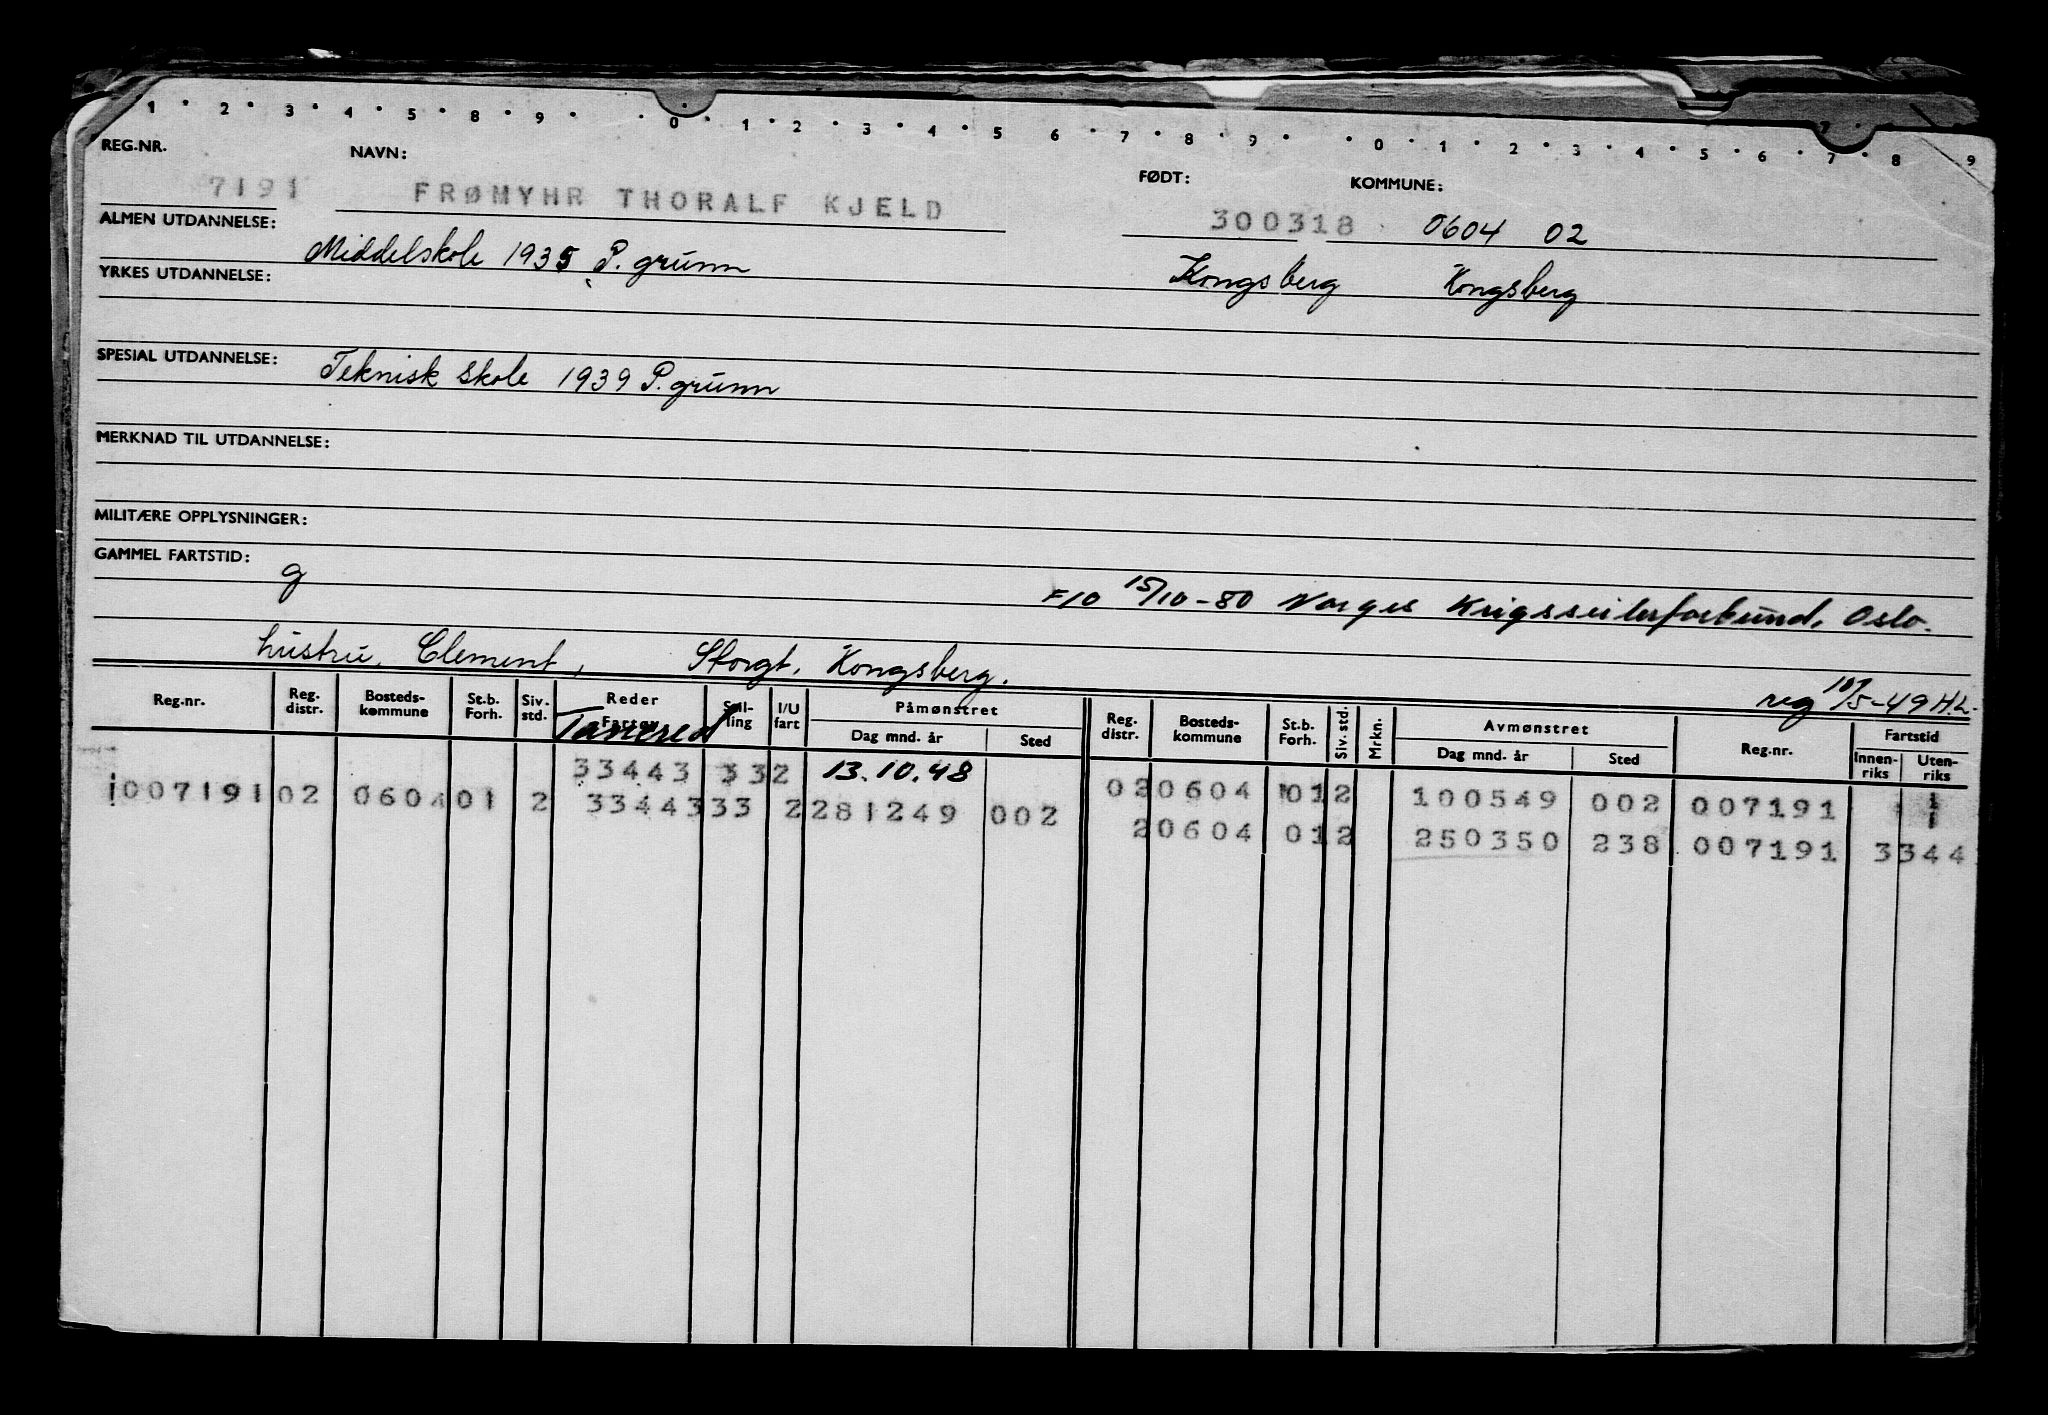 1 2 3 4 5 8 9 0 1 2 3 4 5 6 7 8 9 0 1 2 3 4 5 6 7 8 9
REG.NR. NAVN: FØDT: KOMMUNE:
7191 FRØMYHR THORALF KJELD 300318 0604 02
ALMEN UTDANNELSE: Middelskole 1935 P. grunn Kongsberg Kongsberg
YRKES UTDANNELSE:
SPESIAL UTDANNELSE: Teknisk skole 1939 P. grunn
MERKNAD TIL UTDANNELSE:
MILITÆRE OPPLYSNINGER:
GAMMEL FARTSTID: g
F10 15/10-80 Norges Krigsseilerforbund, Oslo.
hustru, Clement, Storgt. Kongsberg.
reg 10/5-49 H.L.
Reg.nr. Reg. distr. Bosteds-kommune St.b. Forh. Siv. std. Reder Fartøy Stilling I/U fart Påmønstret Dag mnd. år Sted Reg. distr. Bosteds-kommune St.b. Forh. Siv. std. Mrkn. Avmønstret Dag mnd. år Sted Reg.nr. Fartstid Innen-riks Uten-riks
Tancred
33443 332 13.10.48 020604 012 100549 002 007191 1
007191 02 0604 01 2 33443 33 2 281249 002 20604 012 250350 238 007191 3344